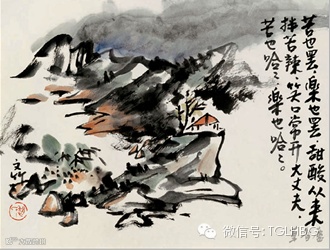 苦也罢、乐也罢、甜酸从来
拌苦辣、笑口常开大丈夫、
苦也哈哈、乐也哈哈。
微信号: TGLHBG